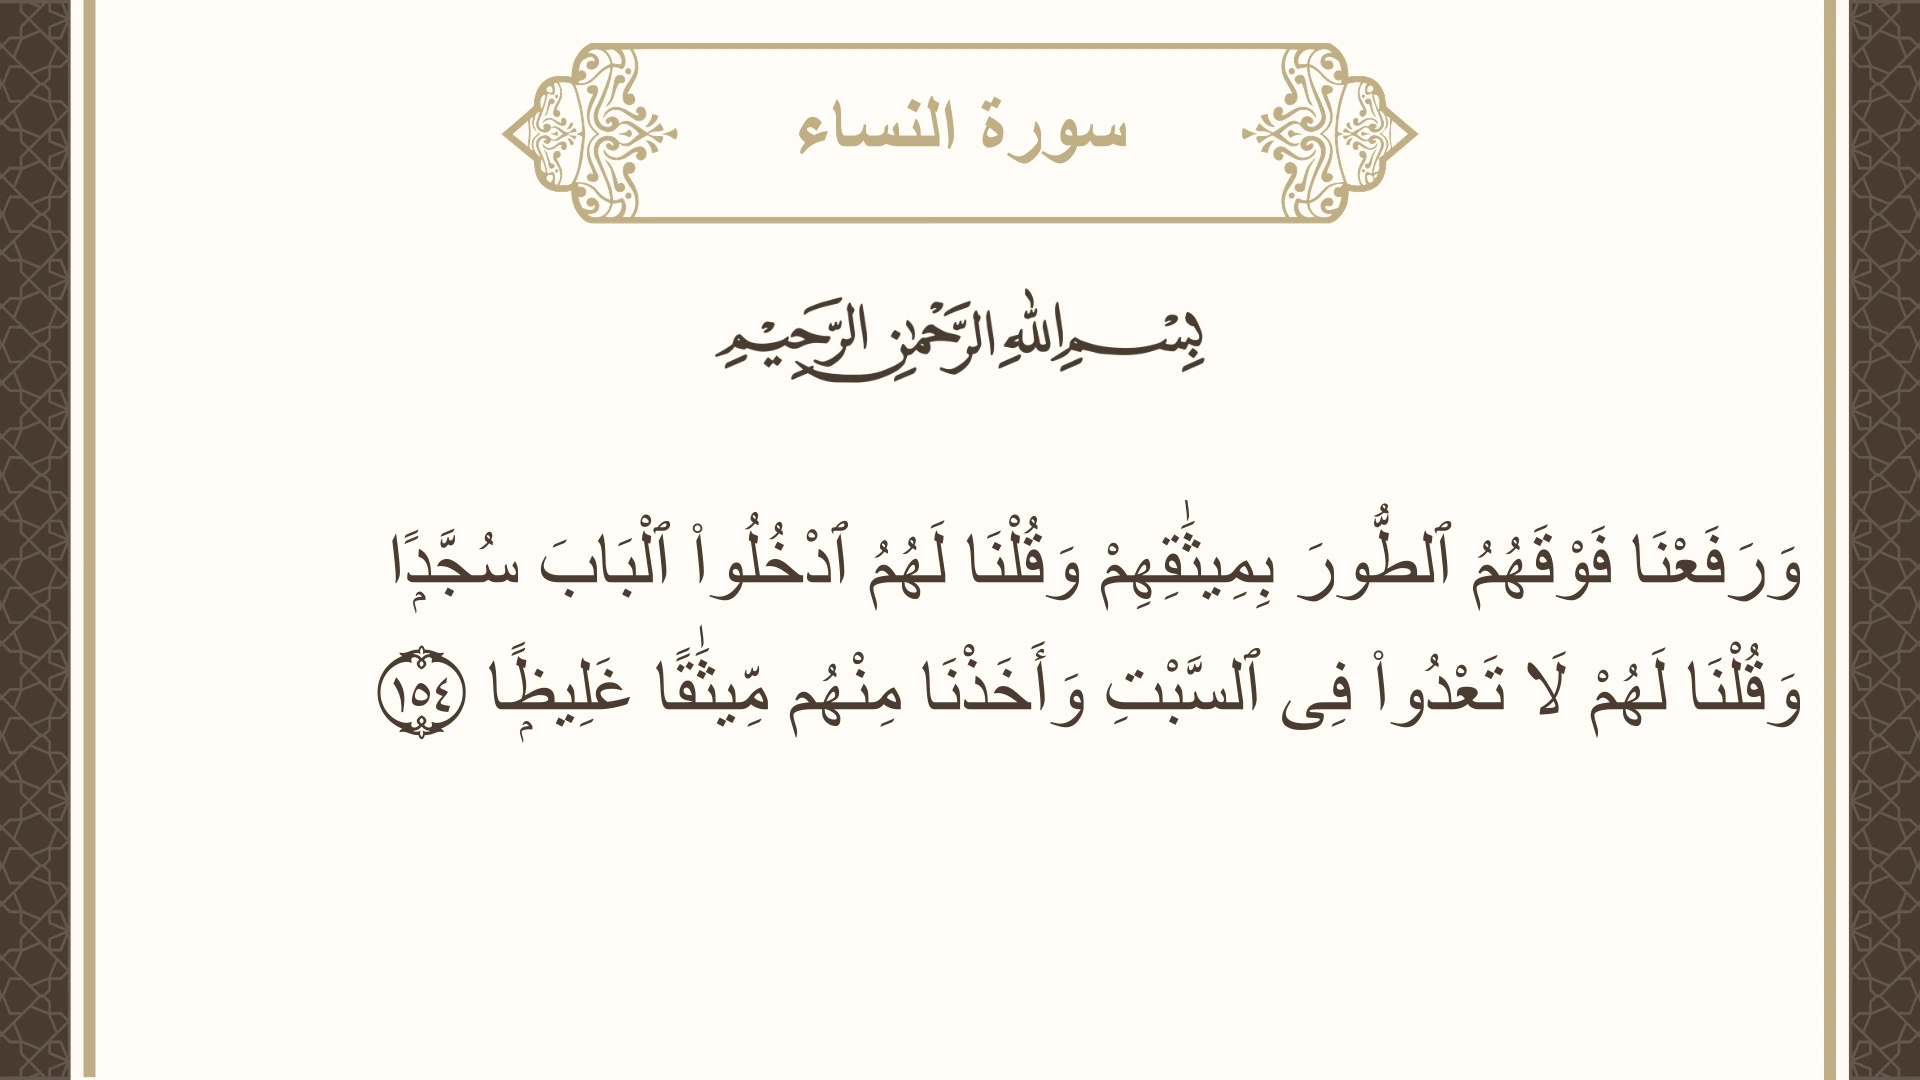 سورة النساء
بِسْمِ اللهِ الرَّحْمٰنِ الرَّحِيْمِ
وَرَفَعْنَا فَوْقَهُمُ ٱلطُّورَ بِمِيثَٰقِهِمْ وَقُلْنَا لَهُمُ ٱدْخُلُوا۟ ٱلْبَابَ سُجَّدًۭا
وَقُلْنَا لَهُمْ لَا تَعْدُوا۟ فِى ٱلسَّبْتِ وَأَخَذْنَا مِنْهُم مِّيثَٰقًا غَلِيظًۭا ١٥٤